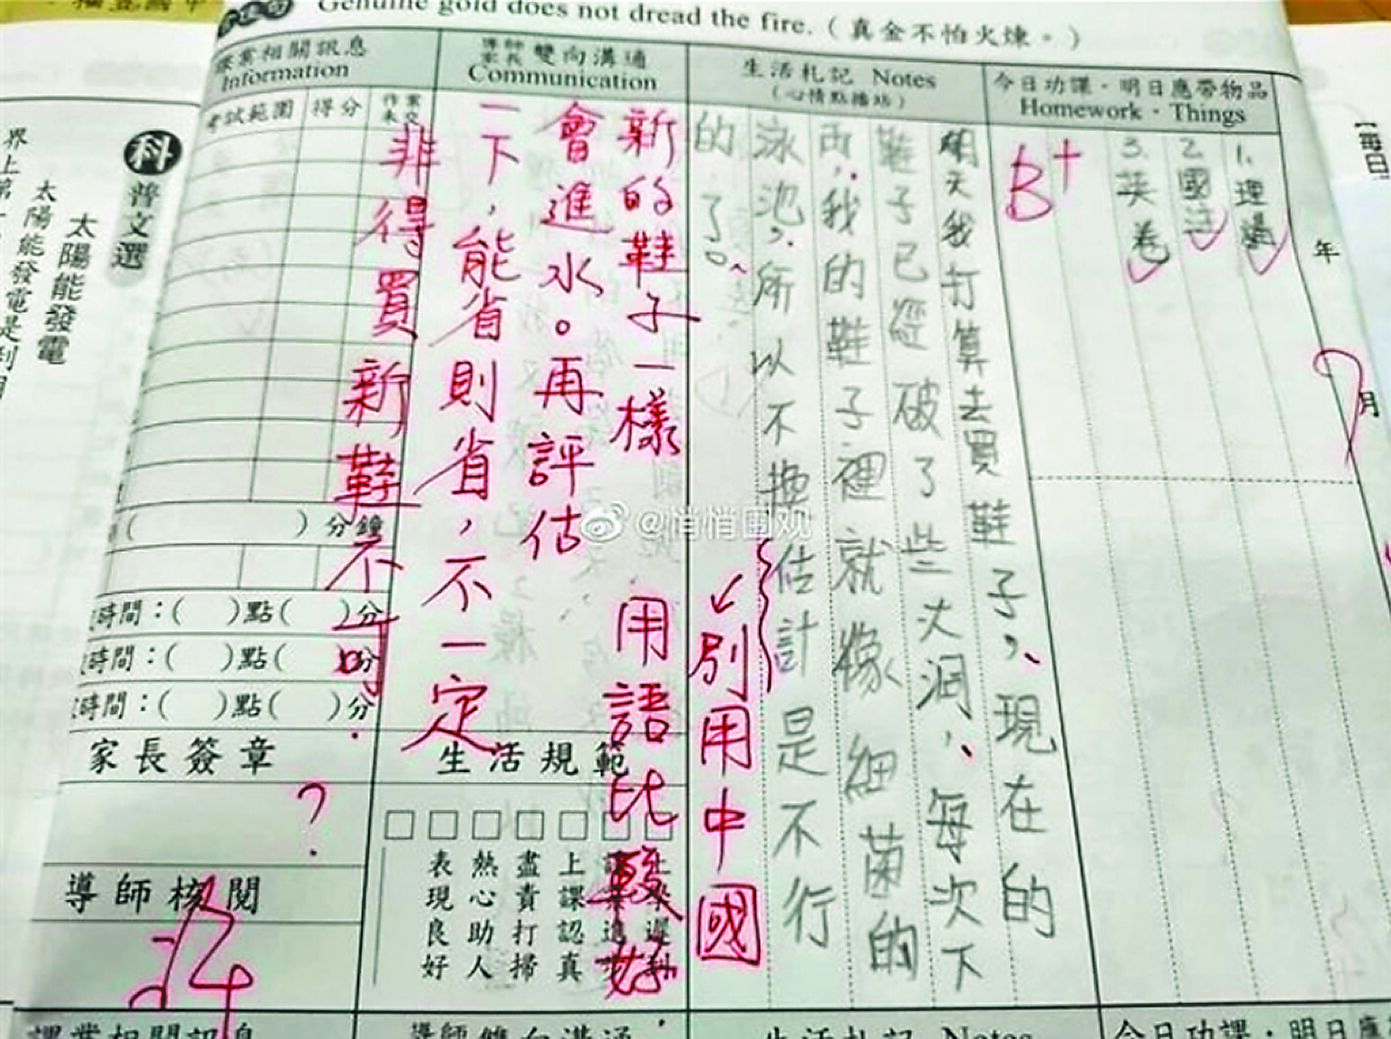 Genuine gold does not dread the fire.(真金不怕火煉。)
今日功課·明日應帶物品
Homework·Things
1.理講
2.國注
3.英卷
B+
年
月
生活札記 Notes
(心情點播站)
明天我打算去買鞋子,現在的
鞋子已經破了些大洞,每次下
雨,我的鞋子裡就像細菌的
泳池,所以不換估計是不行
的了。
↙別用中國
用語比較好
導師家長雙向溝通
Communication
新的鞋子一樣
會進水。再評估
一下,能省則省,不一定
非得買新鞋不可.
課業相關訊息
Information
考試範圍
得分
作業未交
( )分鐘
時間:( )點( )分
時間:( )點( )分
時間:( )點( )分
家長簽章
?
導師核閱
生活規範
上課認真
盡責打掃
熱心助人
表現良好
科普文選
太陽能發電
太陽能發電是利用
界上第一
【每日
@悄悄围观
課業相關訊息
導師雙向溝通
生活札記 Notes
今日功課·明日應